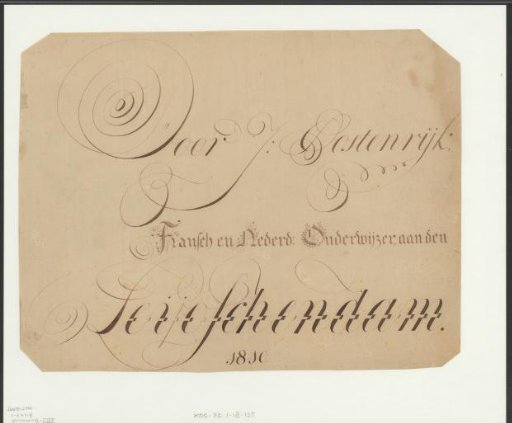 Door J: Oostenrijk.
Fransch en Nederd: Onderwijzer aan den
Leijdschendam.
1810